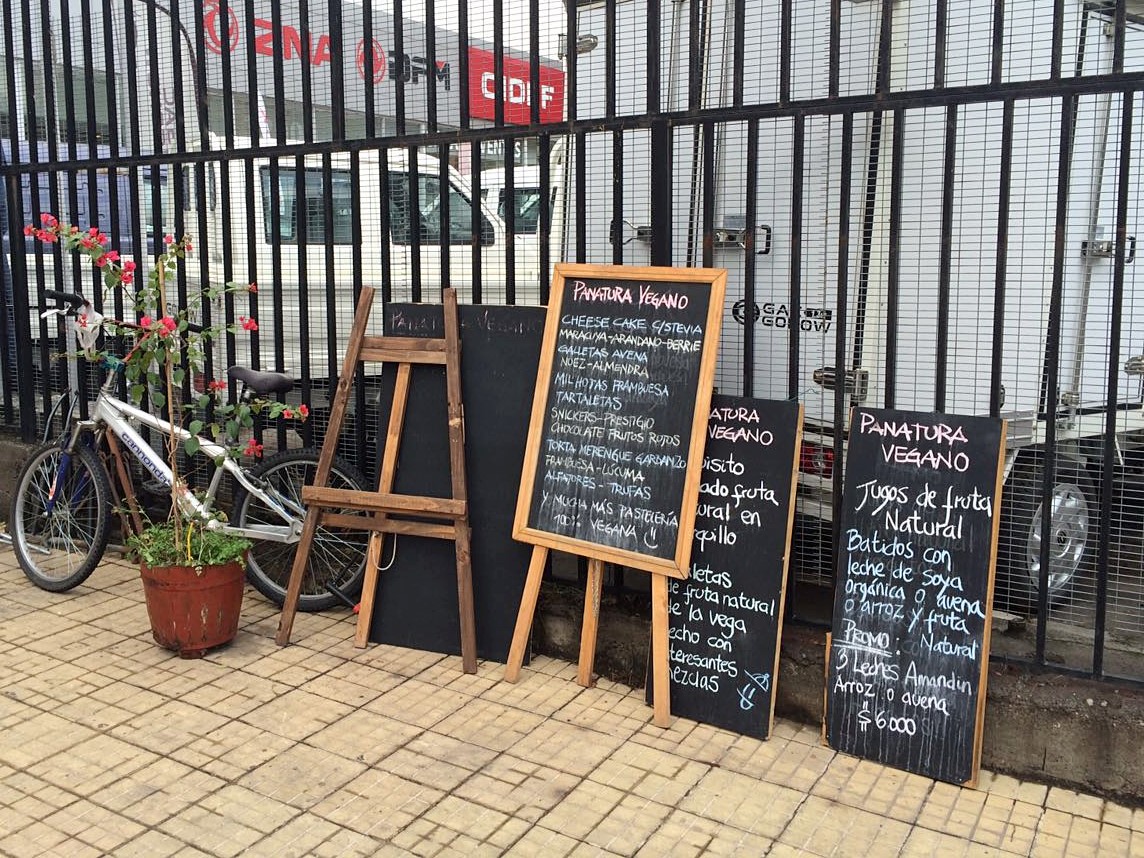 ZNA
DFM
CIDEF
cannondale
PANATURA VEGANO
CHEESE CAKE C/STEVIA
MARACUYA-ARANDANO-BERRIE
GALLETAS AVENA
NUEZ-ALMENDRA
MIL HOJAS FRAMBUESA
TARTALETAS
SNICKERS-PRESTIGIO
CHOCOLATE FRUTOS ROJOS
TORTA MERENGUE GARBANZO
FRAMBUESA-LÚCUMA
ALFAJORES - TRUFAS
Y MUCHA MÁS PASTELERÍA
100% VEGANA
ATURA
VEGANO
isito
ado fruta
ural en
quillo
letas
de fruta natural
de la vega
echo con
teresantes
ezclas
GOLDOW
PANATURA
VEGANO
Jugos de fruta
Natural
Batidos con
leche de Soya
orgánica o avena
o arroz y fruta
Natural
PROMO:
3 Leches Amandin
Arroz o avena
$6.000